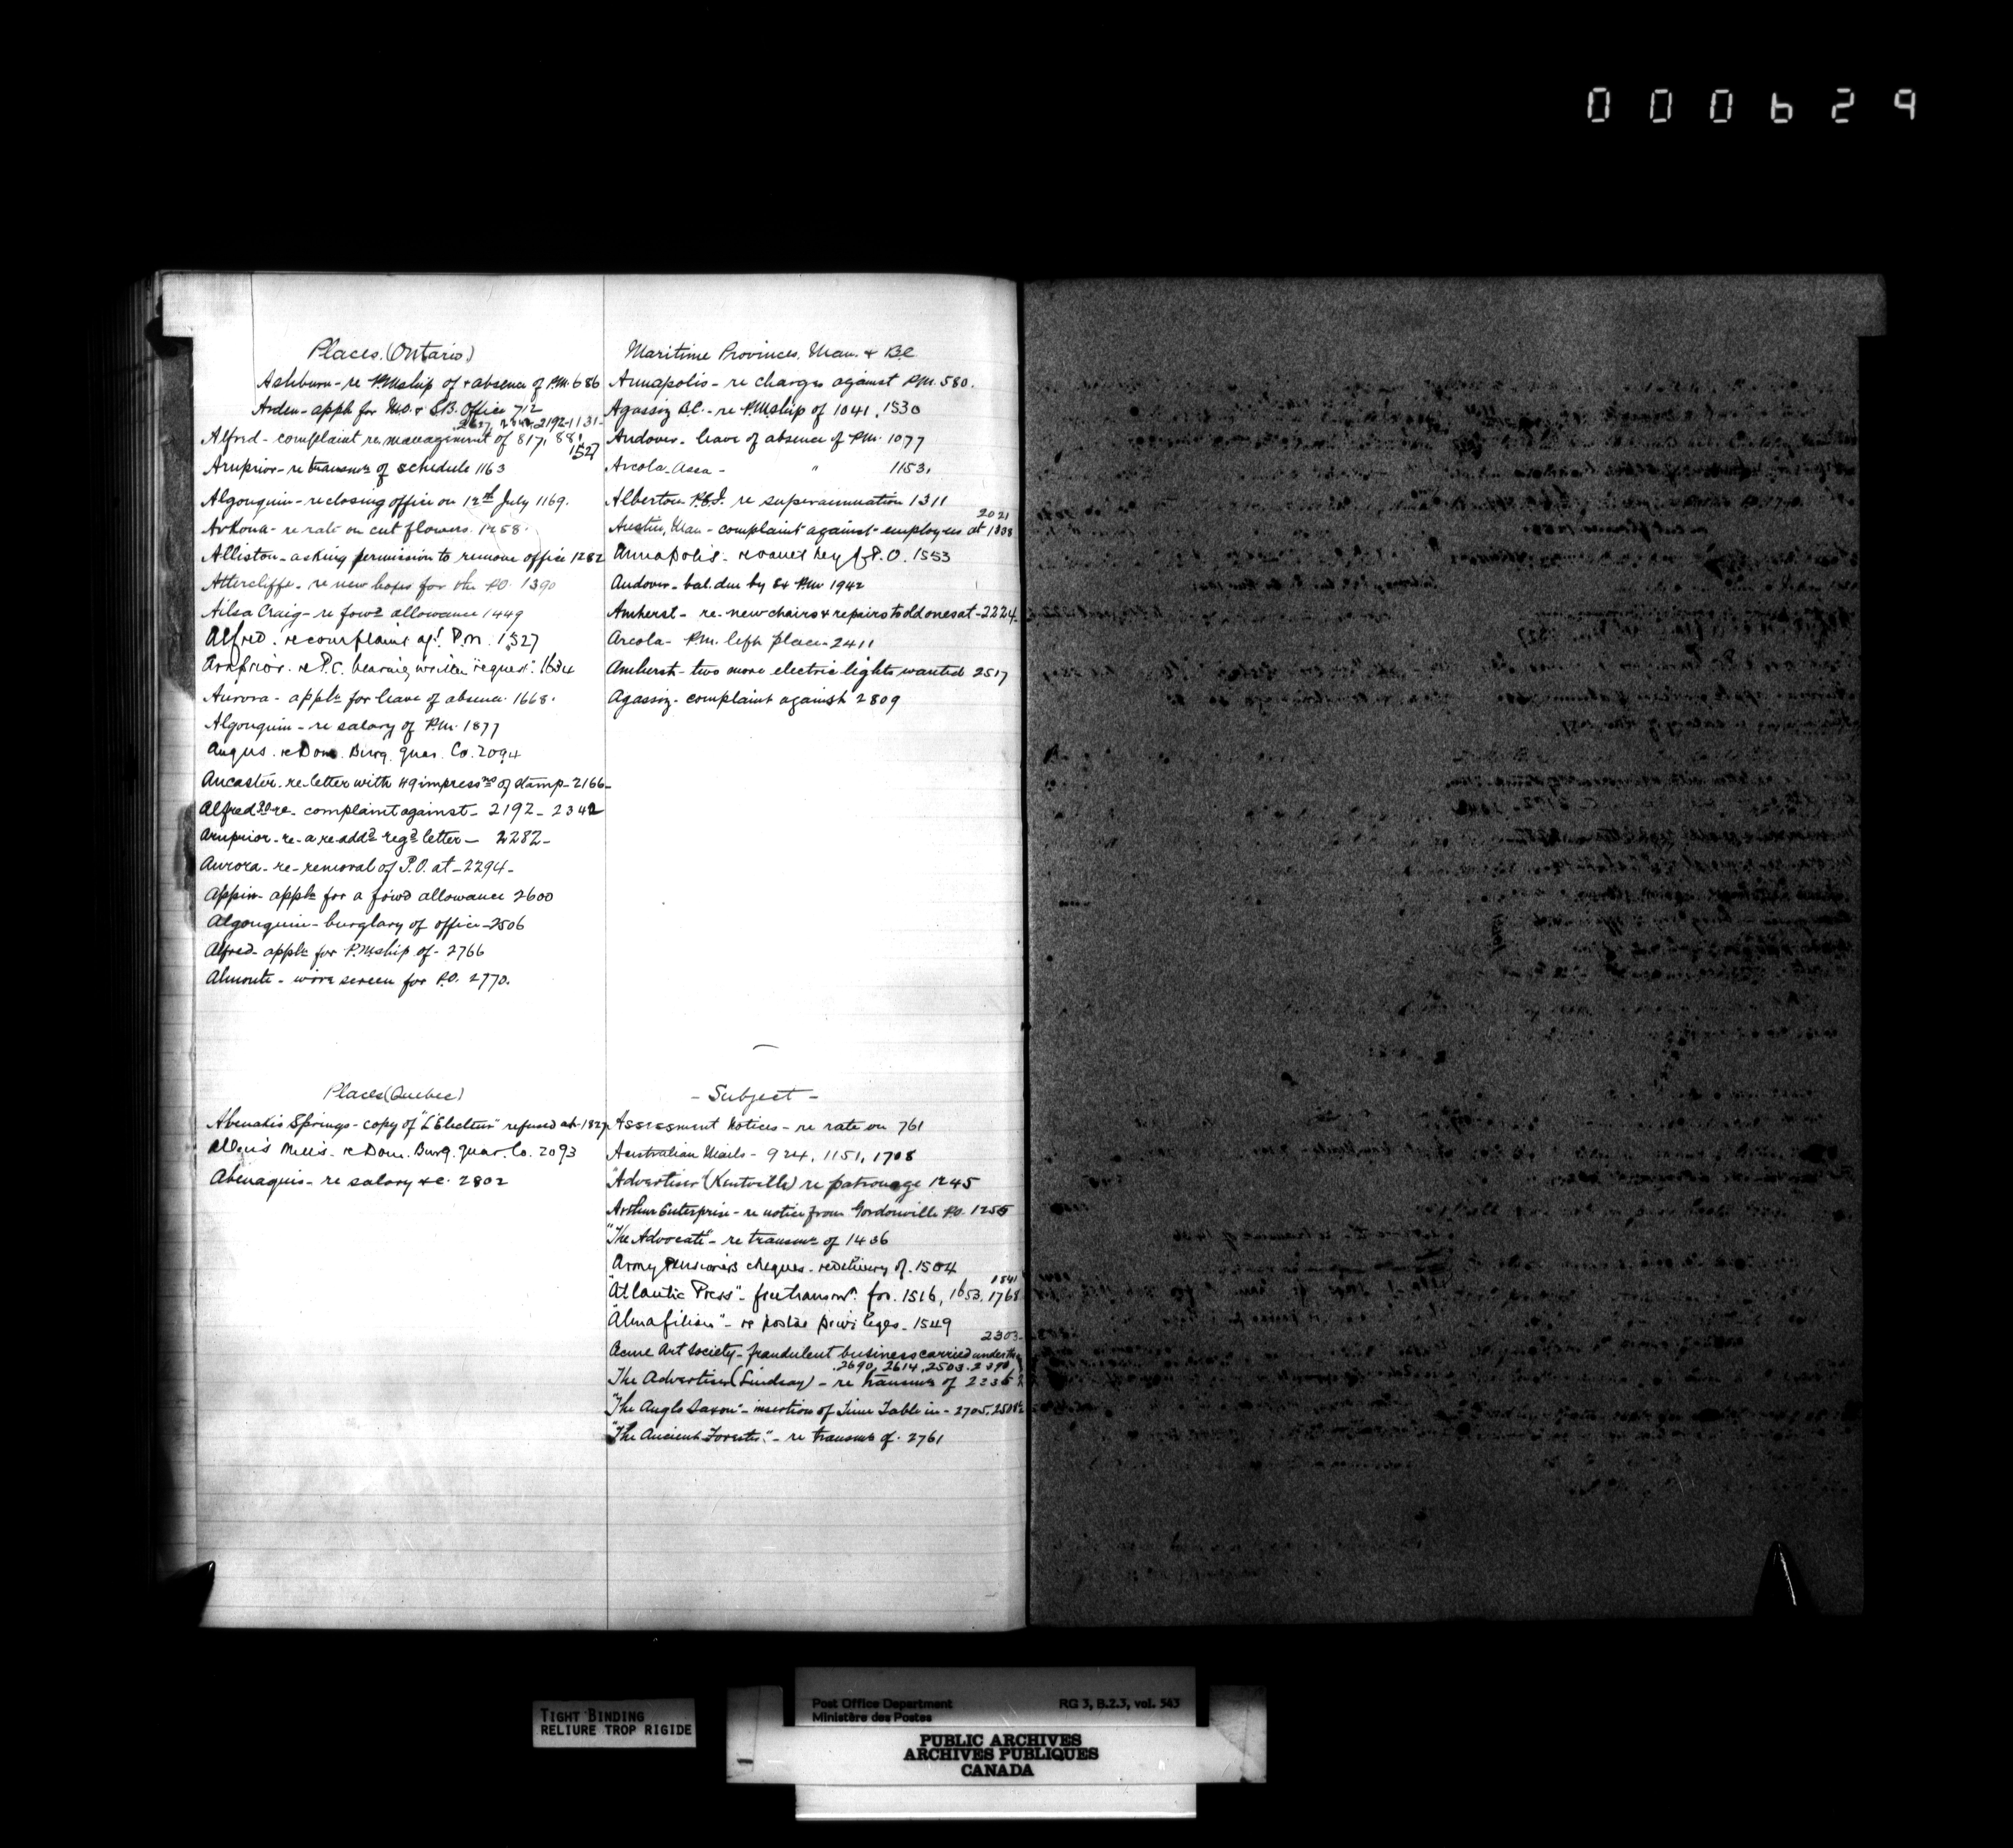 000629
Places. (Ontario)
Ashburn - re P.Mship of + absence of P.M. 686
Arden - appln for M.O. & S.B. Office 712
2192-1131-
Alford - complaint re management of 817, 881
1527
Arnprior - re transmn of schedule 1163
Algonquin - re closing office on 12th July 1169.
Arkona - re rate on cut flowers. 1258.
Alliston - asking permission to remove office 1282
Attercliffe - re new boxes for the P.O. 1390
Ailsa Craig - re forwd allowance 1449
Alfred. re complaint agt P.M. 1527
Arnprior. re P.C. bearing written "request" 1634
Aurora - appln for leave of absence 1668.
Algonquin - re salary of P.M. 1877
Angus. re Dom. Burg. Guar. Co. 2094
Ancaster - re letter with 49 impressns of stamp - 2166-
Alfred P.O. re - complaint against - 2192 - 2342
Arnprior - re - a re-addd regd letter - 2282-
Aurora - re - removal of P.O. at - 2294-
Appin - appln for a forwd allowance 2600
Algonquin - burglary of office - 2506
Alfred - appln for P.Mship of - 2766
Almonte - wire screen for P.O. 2770.
Maritime Provinces, Man. & B.C.
Annapolis - re charges against P.M. 580.
Agassiz B.C. - re P.Mship of 1041, 1530
Andover - leave of absence of P.M. 1077
Arcola Assa - " 1153.
Alberton P.E.I. re superannuation 1311
2021
Austin, Man - complaint against employees at 1338
Annapolis - re key P.O. 1553
Andover - bal. due by Ex P.M. 1942
Amherst - re - new chairs & repairs to old ones at - 2224-
Arcola - P.M. left place - 2411
Amherst - two more electric lights wanted 2517
Agassiz - complaint against 2809
Places (Quebec)
Abenakis Springs - copy of "L'Electeur" refused at - 1827
Allen's Mills. re Dom. Burg. Guar. Co. 2093
Abenaquis - re salary &c. 2802
- Subject -
Assessment Notices - re rate on 761
Australian Mails - 924, 1151, 1708
"Advertiser (Kentville) re patronage 1245
Arthur Enterprise - re notice from Gordonville P.O. 1255
"The Advocate" - re transmn of 1436
Army Pensioners cheques - re delivery of. 1504
1841
"Atlantic Press" - free transmn for. 1516, 1653, 1768
"Almafilian" - re postal privileges - 1549
2303-
Acme Art Society - fraudulent business carried under the
2690, 2614, 2503, 2390
The Advertiser (Lindsay) - re transmn of 2335
"The Anglo Saxon" - insertion of Time Table in - 2705, 2508
"The Ancient Forester" - re transmn of. 2761
TIGHT BINDING
RELIURE TROP RIGIDE
Post Office Department RG 3, B.2.3, vol. 543
Ministère des Postes
PUBLIC ARCHIVES
ARCHIVES PUBLIQUES
CANADA